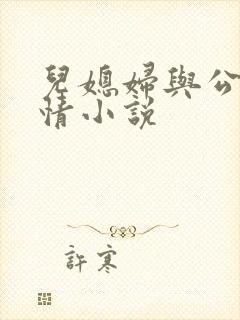 兒媳婦與公
情小說
許寒